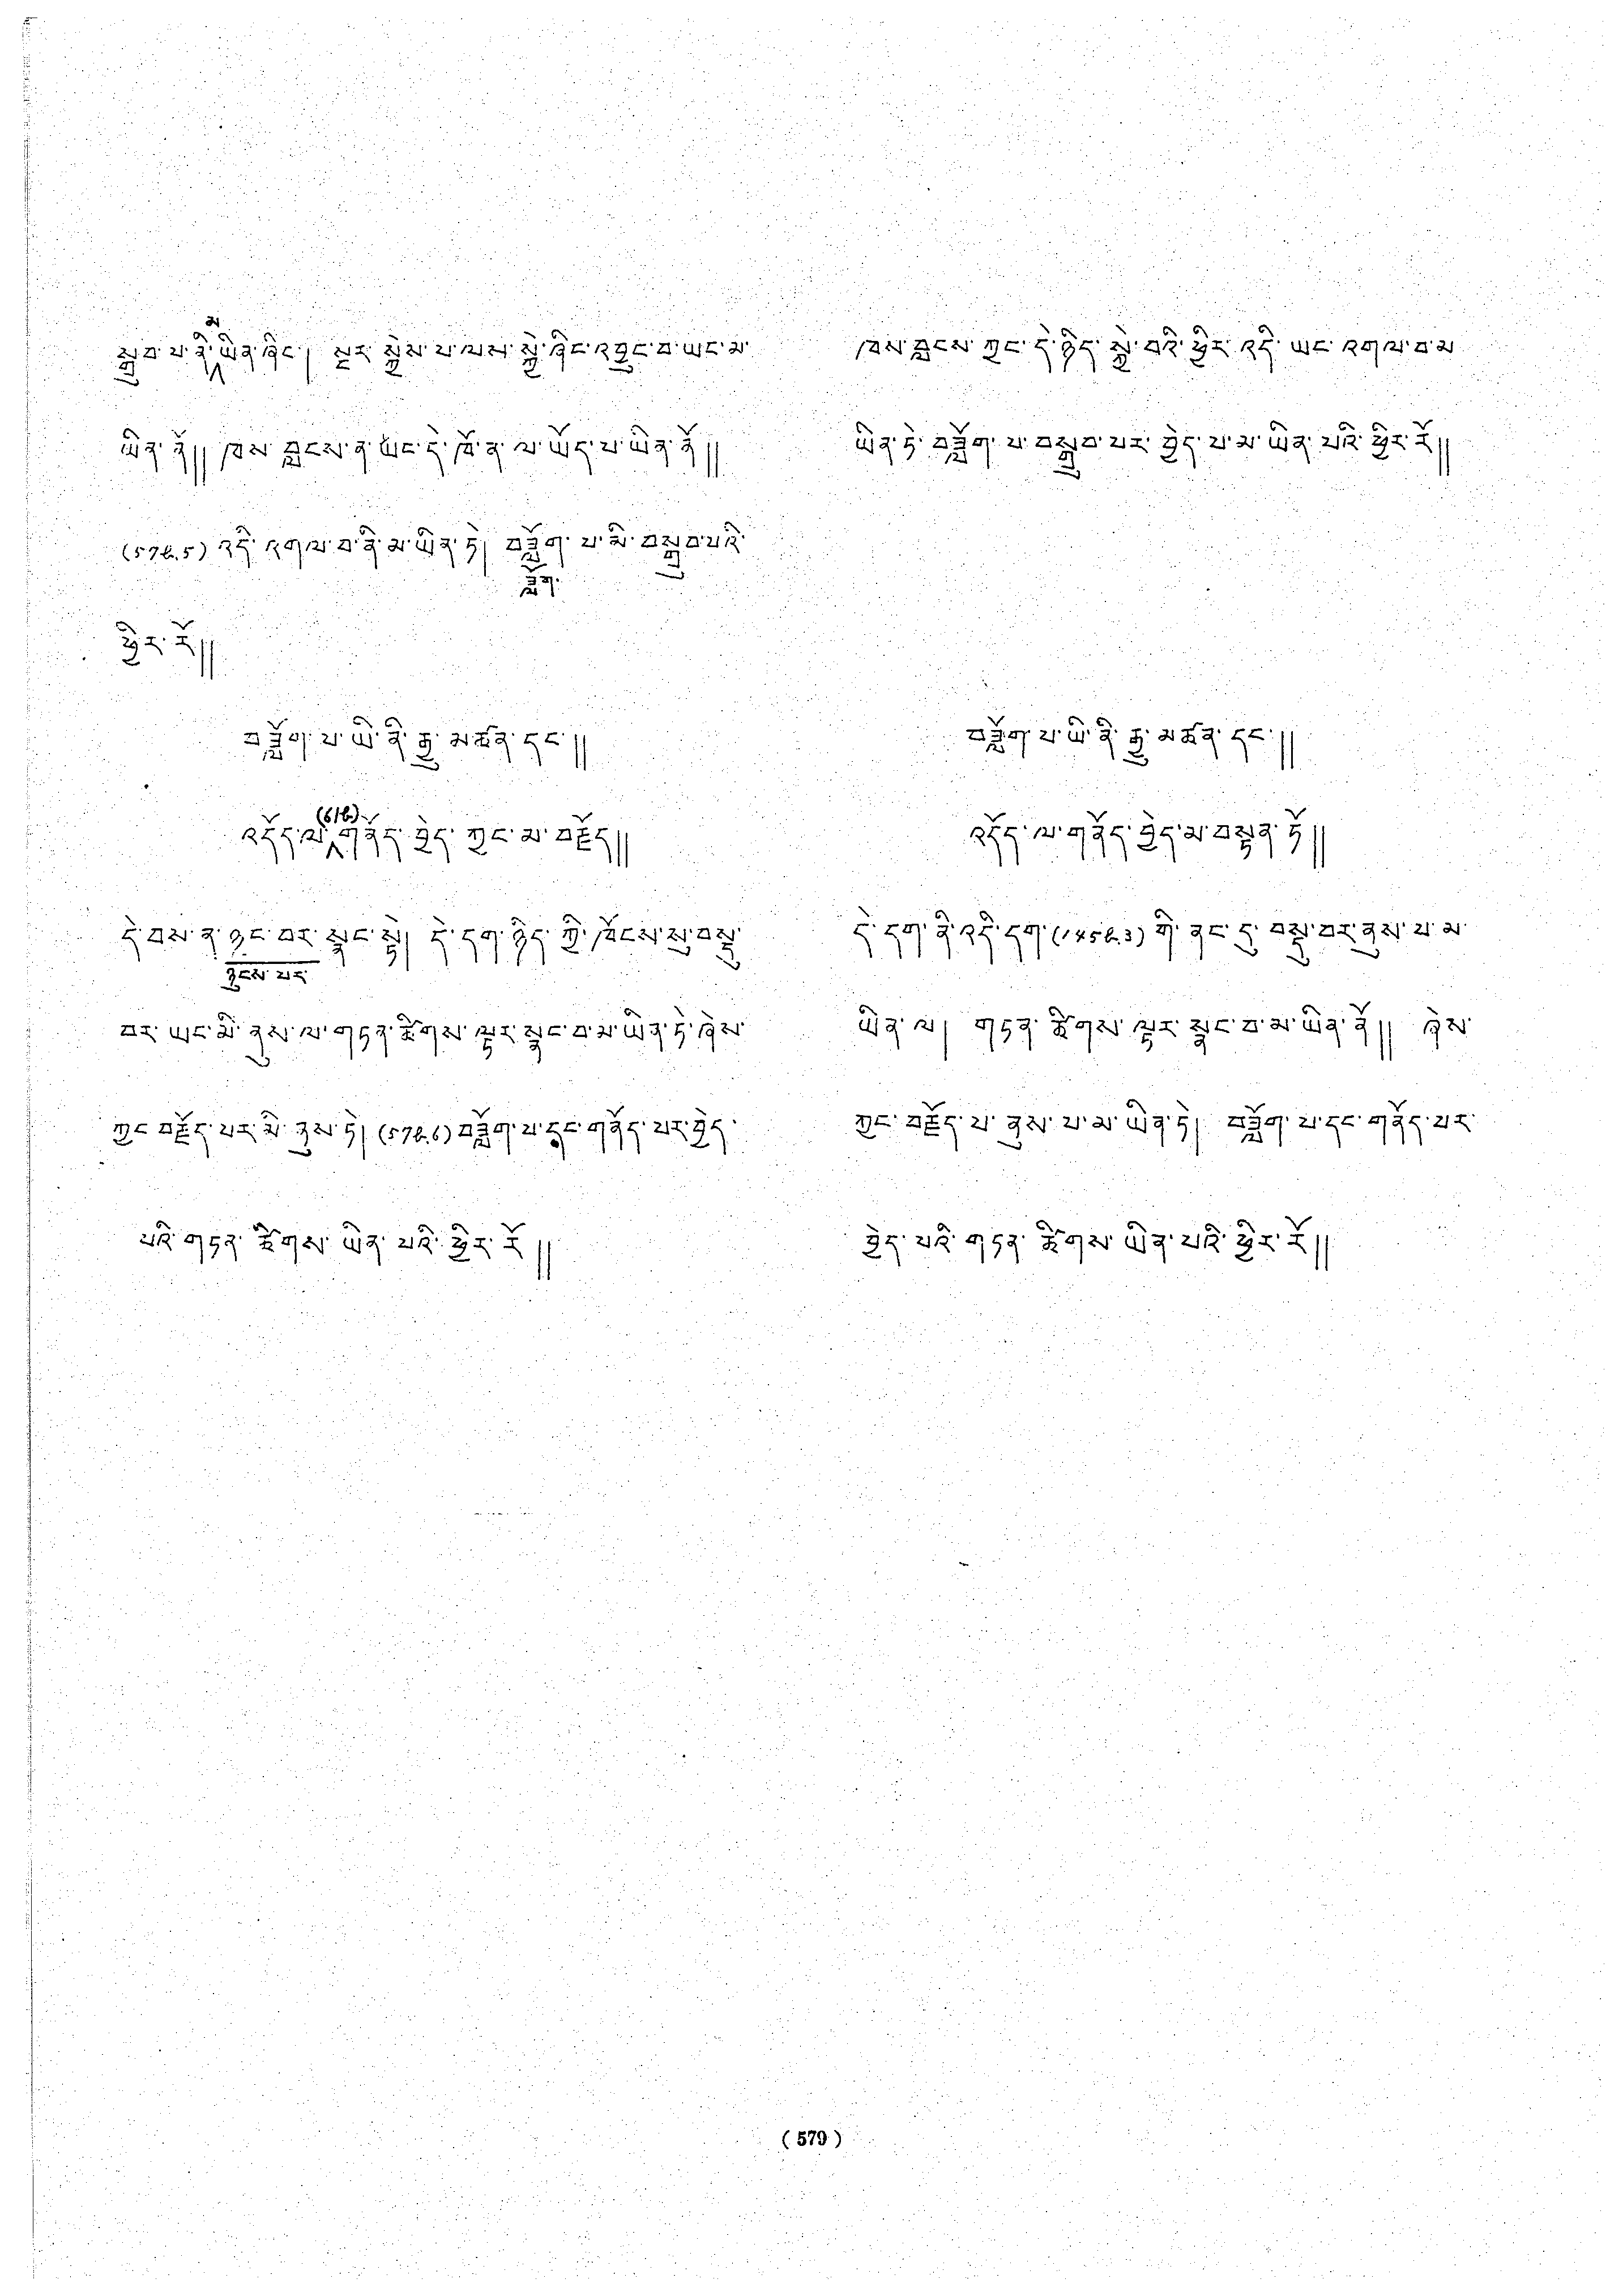 སྒྲུབ་པ་ནི་མ་ཡིན་ཞིང་། སྔར་སྐྱེས་པ་ལས་སྐྱེ་ཞིང་འབྱུང་བ་ཡང་མ་
ཡིན་ནོ།། ཁས་བླངས་ན་ཡང་དེ་ཁོ་ན་ལ་ཡོད་པ་ཡིན་ནོ།།
(57b.5) འདི་འགལ་བ་ནི་མ་ཡིན་ཏེ། བཟློག་པ་མི་བསྒྲུབ་པའི་
ཟློག་
ཕྱིར་རོ།།
བཟློག་པ་ཡི་ནི་རྒྱུ་མཚན་དང་།།
འདོད་ལ་(61b)གནོད་བྱེད་ཀྱང་མ་བརྗོད།།
དེ་བས་ན་ཉུང་བར་སྣང་སྟེ། དེ་དག་ཉིད་ཀྱི་ཁོངས་སུ་བསྡུ་
ཉུངས་པར་
བར་ཡང་མི་ནུས་ལ་གཏན་ཚིགས་ལྟར་སྣང་བ་མ་ཡིན་ཏེ་ཞེས་
ཀྱང་བརྗོད་པར་མི་ནུས་ཏེ། (57b.6) བཟློག་པ་དང་གནོད་པར་བྱེད་
པའི་གཏན་ཚིགས་ཡིན་པའི་ཕྱིར་རོ།།
ཁས་བླངས་ཀྱང་དེ་ཉིད་སྐྱེ་བའི་ཕྱིར་འདི་ཡང་འགལ་བ་མ
ཡིན་ཏེ་བཟློག་པ་བསྒྲུབ་པར་བྱེད་པ་མ་ཡིན་པའི་ཕྱིར་རོ།།
བཟློག་པ་ཡི་ནི་རྒྱུ་མཚན་དང་།།
འདོད་ལ་གནོད་བྱེད་མ་བསྟན་ཏོ།།
དེ་དག་ནི་འདི་དག་(145b.3) གི་ནང་དུ་བསྡུ་བར་ནུས་པ་མ་
ཡིན་ལ། གཏན་ཚིགས་ལྟར་སྣང་བ་མ་ཡིན་ནོ།། ཞེས་
ཀྱང་བརྗོད་པ་ནུས་པ་མ་ཡིན་ཏེ། བཟློག་པ་དང་གནོད་པར་
བྱེད་པའི་གཏན་ཚིགས་ཡིན་པའི་ཕྱིར་རོ།།
(579)